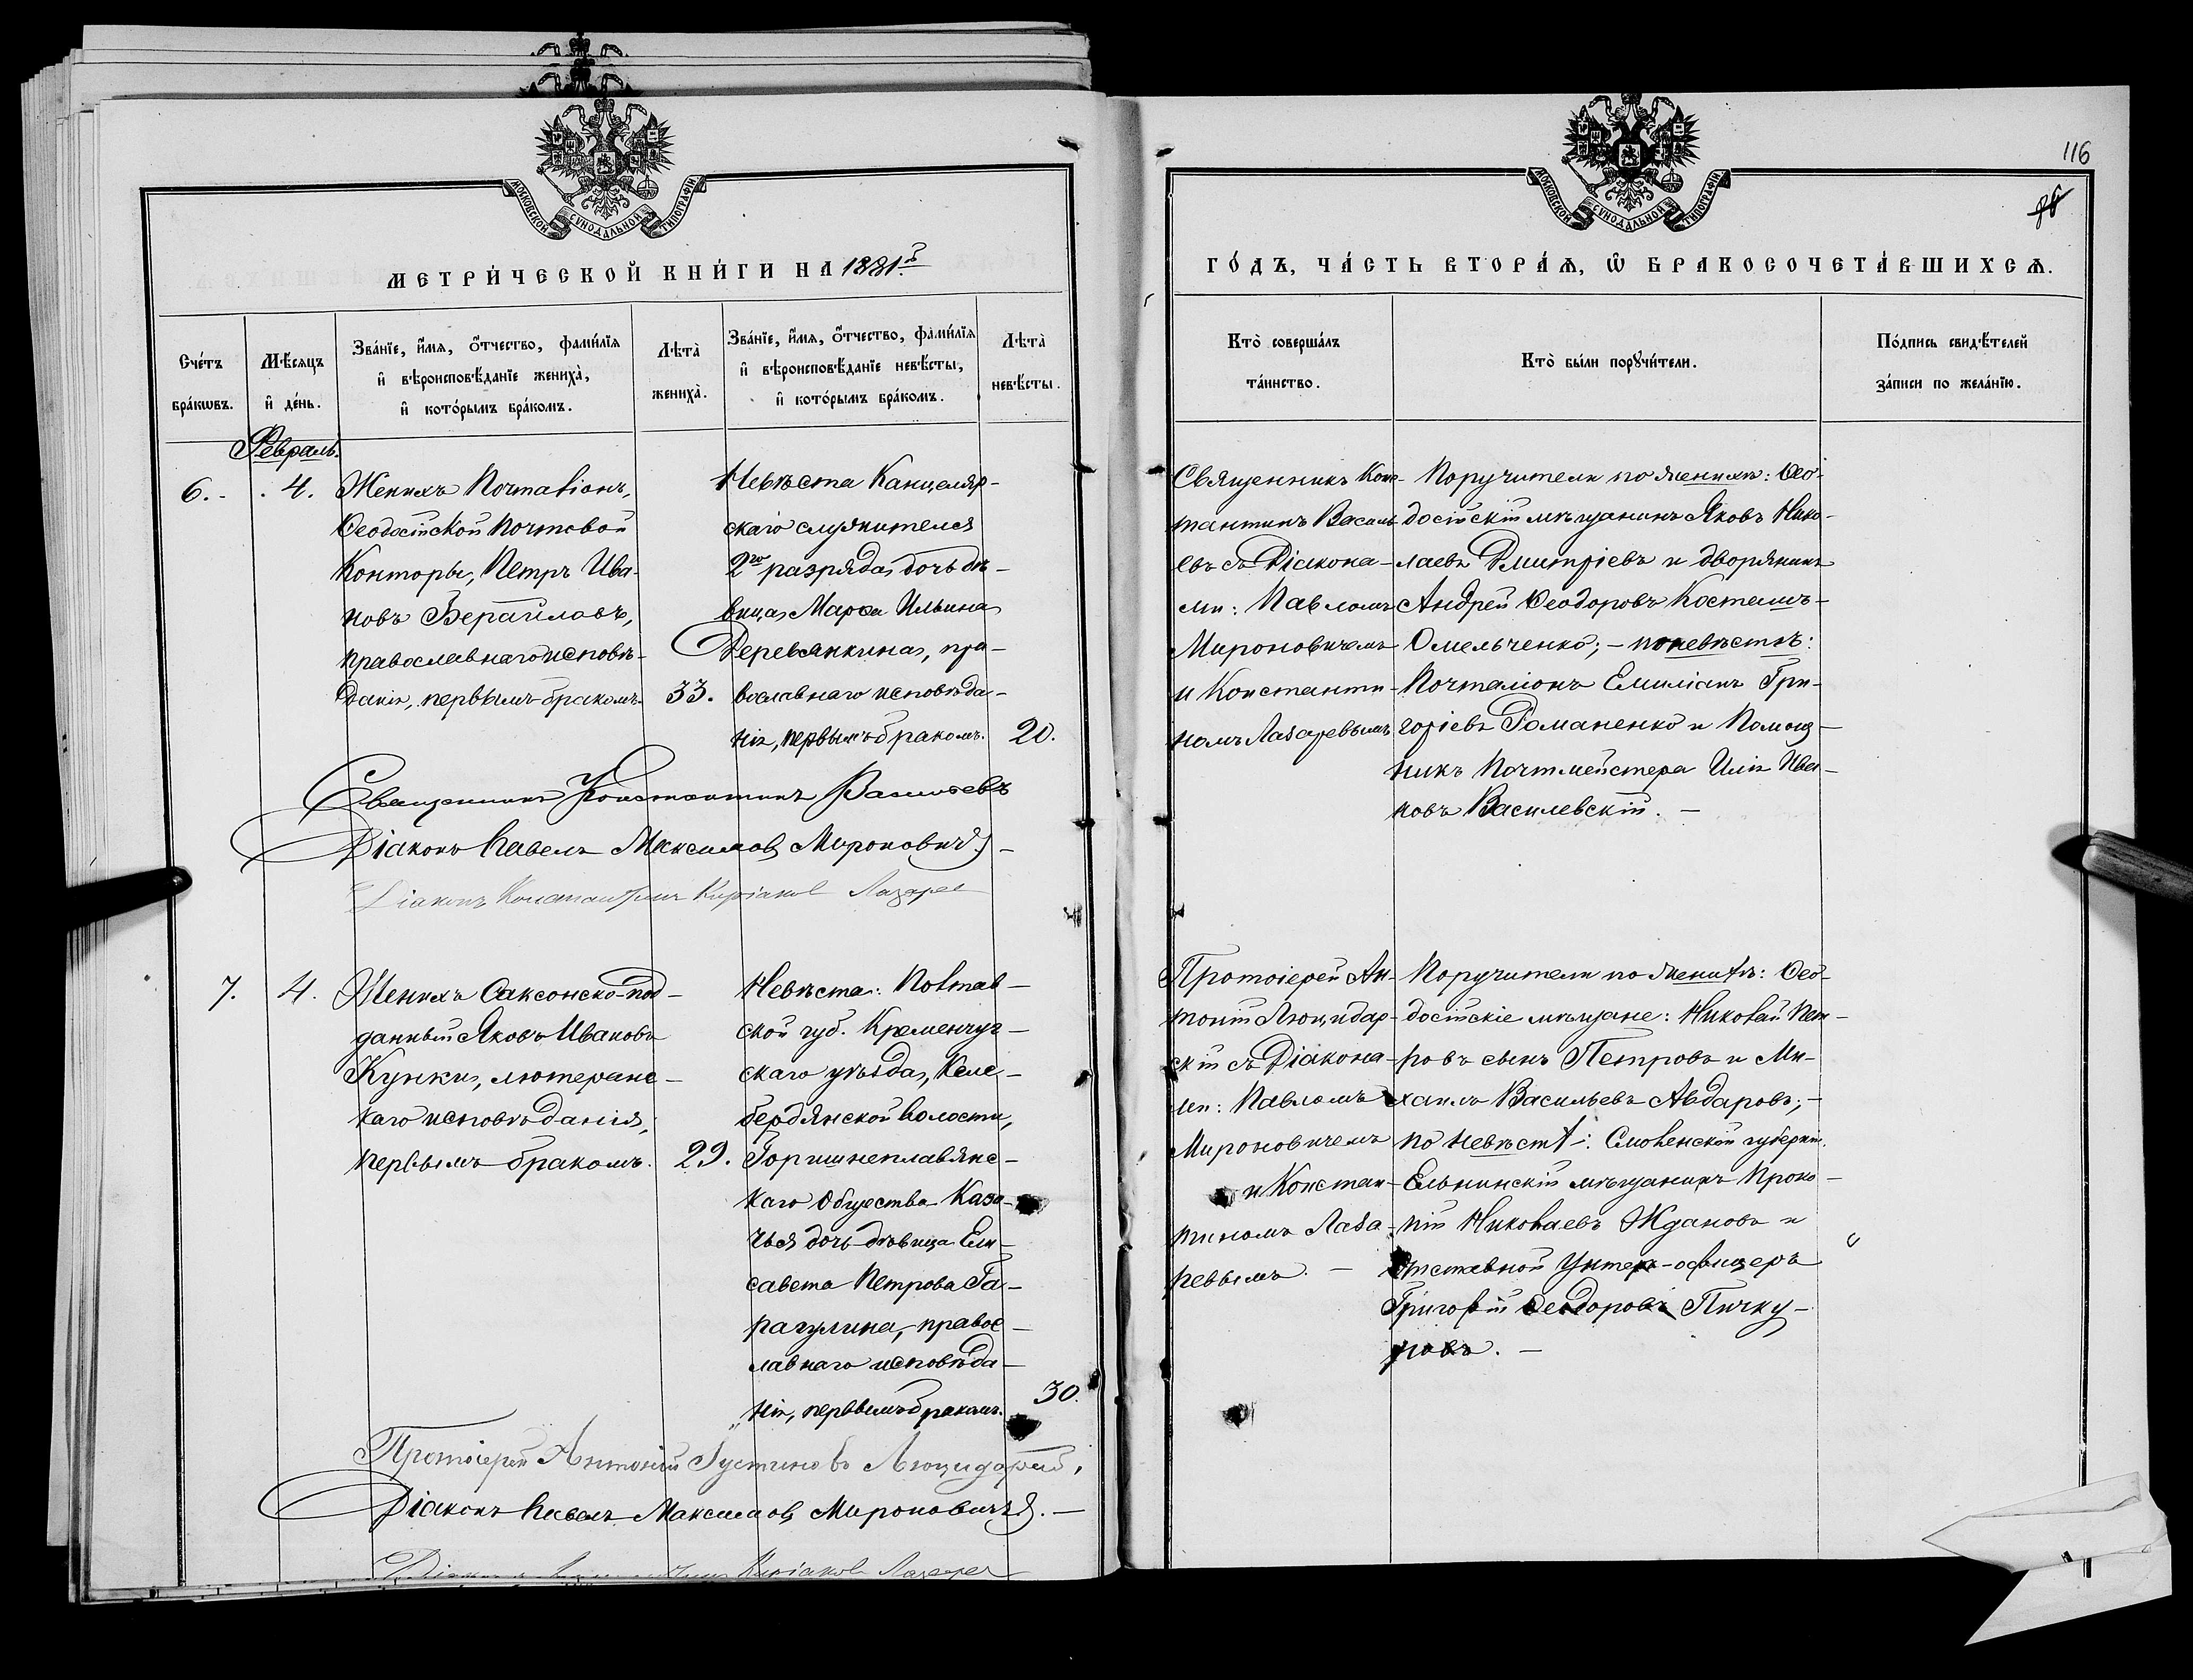 МОСКОВСКОЙ СѴНОДАЛЬНОЙ ТИПОГРАФІИ
МЕТРИ́ЧЕСКОЙ КНИ́ГИ НА 1881й
Сче́тъ бра́кωвъ.
Мѣ́сяцъ и҆ де́нь.
Зва́нїе, и҆́мѧ, ѻ҆́тчество, фами́лїѧ
и҆ вѣроисповѣ́данїе женихà,
и҆ кото́рымъ бра́комъ.
Лѣтà женихà.
Зва́нїе, и҆́мѧ, ѻ҆́тчество, фами́лїѧ
и҆ вѣроисповѣ́данїе невѣ́сты,
и҆ кото́рымъ бра́комъ.
Лѣтà невѣ́сты.
Февраль.
6. 4.
Женихъ Почталіонъ,
Ѳеодосійской Почтовой
Конторы, Петръ Ива-
новъ Берайловъ,
православнаго исповѣ-
данія, первымъ бракомъ.
33.
Невѣста Канцеляр-
скаго служителя
2го разряда, дочь дѣ-
вица, Марѳа Ильина
Деревянкина, пра-
вославнаго исповѣда-
нія, первымъ бракомъ.
20.
Священникъ Константинъ Васильевъ
Діаконъ Павелъ Максимовъ Мироновичъ
Діаконъ Константинъ Киріаков Лазарев
7. 4.
Женихъ Саксонско-под-
данный Яковъ Ивановъ
Кунки, лютеранс-
каго исповѣданія,
первымъ бракомъ.
29.
Невѣста: Полтав-
ской губ. Кременчуг-
скаго уѣзда, Келе-
бердянской волости,
Горишнеплавянс-
каго Общества Каза-
чья дочь-дѣвица Ели-
савета Петрова Га-
рагулина, правос-
лавнаго исповѣда-
нія, первымъ бракомъ.
30.
Протоіерей Антоній Іустиновъ Люцидарскій,
Діаконъ Павелъ Максимовъ Мироновичъ. —
Киріаков Лазарев
116
МОСКОВСКОЙ СѴНОДАЛЬНОЙ ТИПОГРАФІИ
ГО́ДЪ, ЧА́СТЬ ВТОРА́Ѧ, Ѽ БРАКОСОЧЕТА́ВШИХСѦ.
Кто̀ соверша́лъ
та́инство.
Кто̀ бы́ли порꙋчи́тели.
По́дпись свидѣ́телей
за́писи по жела́нїю.
Священникъ Конс-
тантинъ Василь-
евъ съ Діакона-
ми: Павломъ
Мироновичемъ
и Константи-
номъ Лазаревымъ
Поручители по женихѣ: Ѳео-
досійскій мѣщанинъ Яковъ Нико-
лаевъ Дмитріевъ и дворянинъ
Андрей Ѳеодоровъ Костешъ-
Омельченко; — по невѣстѣ:
Почталіонъ Емиліанъ Гри-
горіевъ Романенко и Помощ-
никъ Почтмейстера Илія Ива-
новъ Василевскій. —
Протоіерей Ан-
тоній Люцидар-
скій съ Діакона-
ми: Павломъ
Мироновичемъ
и Констан-
тиномъ Лаза-
ревымъ. —
Поручители по женихѣ: Ѳео-
досійскіе мѣщане: Николай Пет-
ровъ сынъ Петровъ и Ми-
хаилъ Васильевъ Авдаровъ; —
по невѣстѣ: Смоленской губерніи
Ельнинскій мѣщанинъ Проко-
пій Николаевъ Ждановъ и
отставной Унтеръ-офицеръ
Григорій Ѳеодоровъ Пичку-
ровъ. —